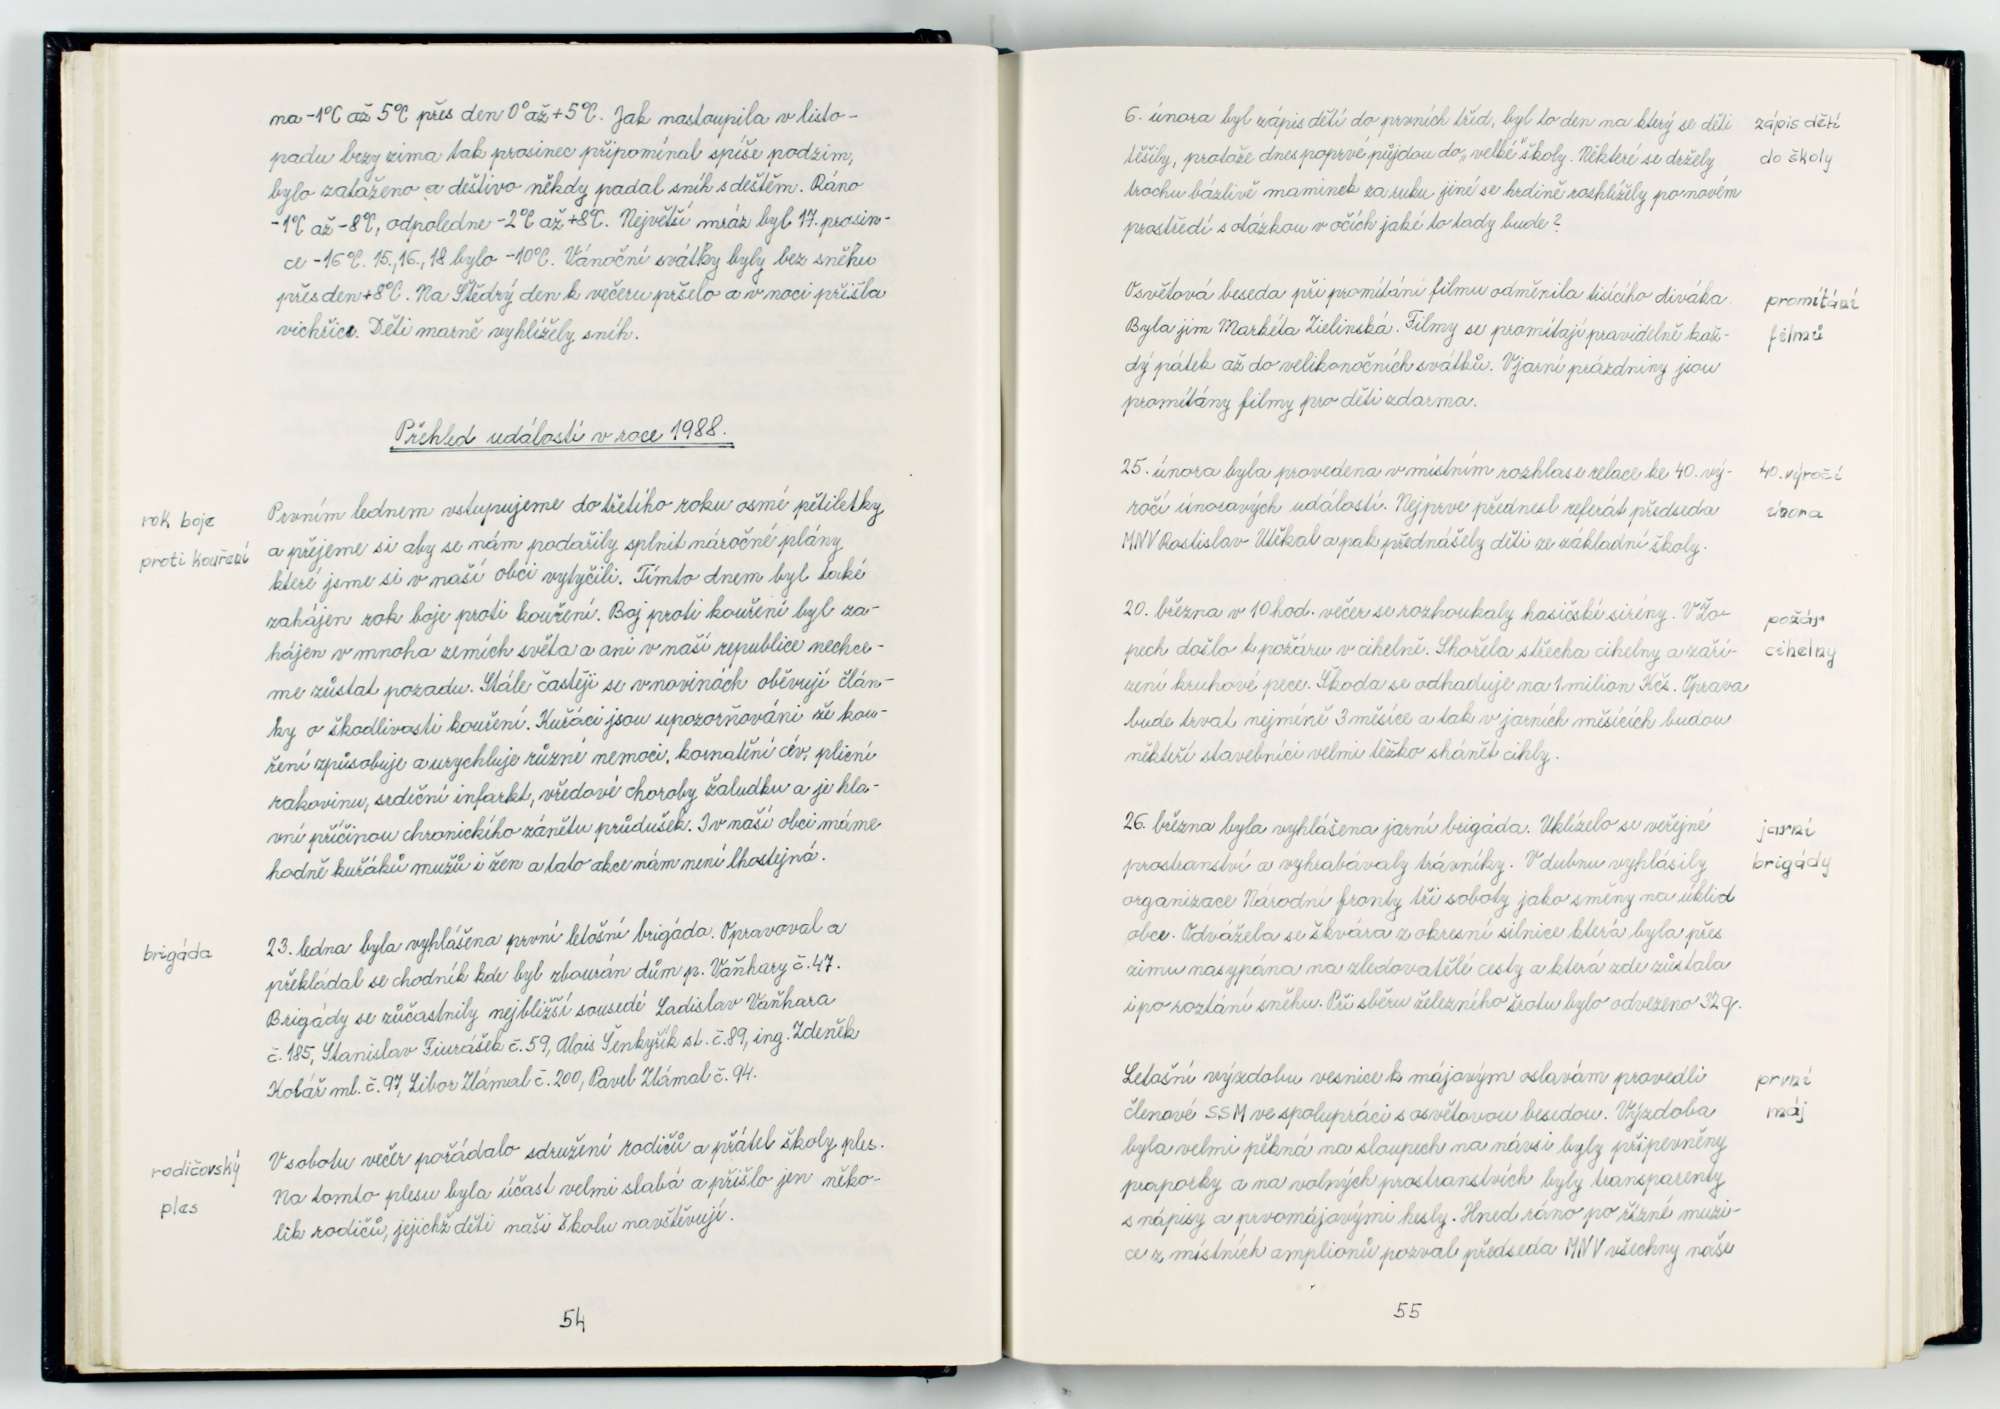 na -1°C až 5°C přes den 0° až +5°C. Jak nastoupila v listo-
padu brzy zima tak prosinec připomínal spíše podzim,
bylo zataženo a deštivo někdy padal sníh s deštěm. Ráno
-1°C až -8°C, odpoledne -2°C až +8°C. Největší mráz byl 17. prosin-
ce -16°C. 15., 16., 18 bylo -10°C. Vánoční svátky byly bez sněhu
přes den +8°C. Na Štědrý den k večeru pršelo a v noci přišla
vichřice. Děti marně vyhlížely sníh.
Přehled událostí v roce 1988.
rok boje
proti kouření
Prvním lednem vstupujeme do třetího roku osmé pětiletky
a přejeme si aby se nám podařily splnit náročné plány
které jsme si v naší obci vytyčili. Tímto dnem byl také
zahájen rok boje proti kouření. Boj proti kouření byl za-
hájen v mnoha zemích světa a ani v naší republice nechce-
me zůstat pozadu. Stále častěji se v novinách oběvují člán-
ky o škodlivosti kouření. Kuřáci jsou upozorňováni že kou-
ření způsobuje a urychluje různé nemoci, kornatění cév, plicní
rakovinu, srdeční infarkt, vředové choroby žaludku a je hla-
vní příčinou chronického zánětu průdušek. I v naší obci máme
hodně kuřáků mužů i žen a tato akce nám není lhostejná.
brigáda
23. ledna byla vyhlášena první letošní brigáda. Opravoval a
překládal se chodník kde byl zbourán dům p. Vaňhary č. 47.
Brigády se zůčastnily nejbližší sousedé Ladislav Vaňhara
č. 185, Stanislav Fiurášek č. 59, Alois Šenkyřík st. č. 89, ing. Zdeněk
Kolář ml. č. 97, Libor Zlámal č. 200, Pavel Zlámal č. 94.
rodičovský
ples
V sobotu večer pořádalo sdružení rodičů a přátel školy ples.
Na tomto plesu byla účast velmi slabá a přišlo jen něko-
lik rodičů, jejichž děti naši školu navštěvují.
54
6. února byl zápis dětí do prvních tříd, byl to den na který se děti
těšily, protože dnes poprvé půjdou do „velké" školy. Některé se držely
trochu bázlivě maminek za ruku jiné se hrdině rozhlížely po novém
prostředí s otázkou v očích jaké to tady bude?
zápis dětí
do školy
Osvětová beseda při promítání filmu odměnila tisícího diváka.
Byla jím Markéta Zielinská. Filmy se promítají pravidelně kaž-
dý pátek až do velikonočních svátků. V jarní prázdniny jsou
promítány filmy pro děti zdarma.
promítání
filmů
25. února byla provedena v místním rozhlase relace ke 40. vý-
ročí únorových událostí. Nejprve přednesl referát předseda
MNV Rostislav Utěkal a pak přednášely děti ze základní školy.
40. výročí
února
20. března v 10 hod. večer se rozhoukaly hasičské sirény. V Žo-
pech došlo k požáru v cihelně. Shořela střecha cihelny a zaří-
zení kruhové pece. Škoda se odhaduje na 1 milion Kčs. Oprava
bude trvat nejméně 3 měsíce a tak v jarních měsících budou
někteří stavebníci velmi těžko shánět cihly.
požár
cihelny
26. března byla vyhlášena jarní brigáda. Uklízelo se veřejné
prostranství a vyhrabávaly trávníky. V dubnu vyhlásily
organizace Národní fronty tři soboty jako směny na úklid
obce. Odvážela se škvára z okresní silnice která byla přes
zimu nasypána na zledovatělé cesty a která zde zůstala
i po roztání sněhu. Při sběru železného šrotu bylo odvezeno 32 q.
jarní
brigády
Letošní výzdobu vesnice k májovým oslavám provedli
členové SSM ve spolupráci s osvětovou besedou. Výzdoba
byla velmi pěkná na sloupech na návsi byly připevněny
praporky a na volných prostranstvích byly transparenty
s nápisy a prvomájovými hesly. Hned ráno po řízné muzi-
ce z místních amplionů pozval předseda MNV všechny naše
první
máj
55